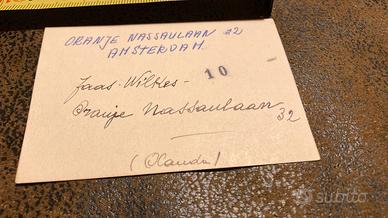 ORANJE NASSAULAAN 32
AMSTERDAM
Jaas-Wilkes-
10
Oranje Nassaulaan 32
(Olanda)
subito